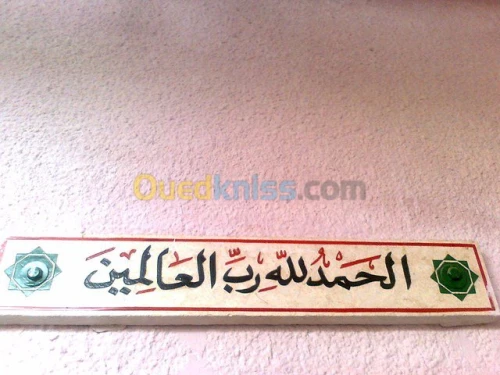 Ouedkniss.com
الحَمْدُ للهِ رَبِّ العَالمِينَ